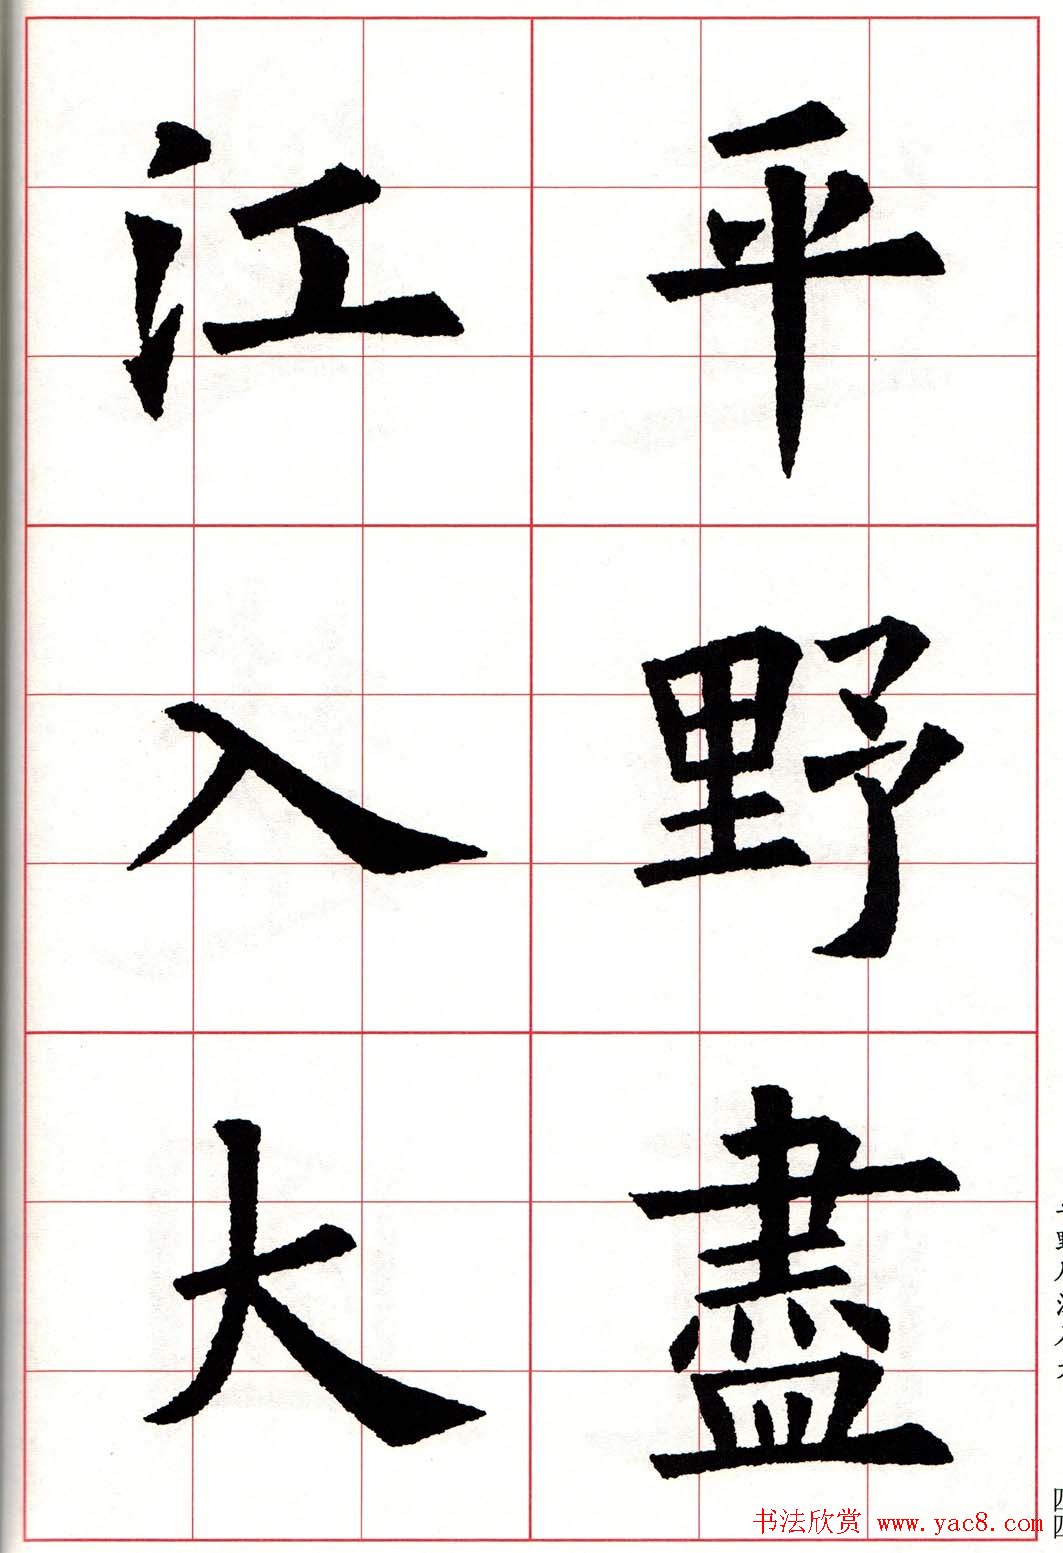 平野盡
江入大
书法欣赏 www.yac8.com